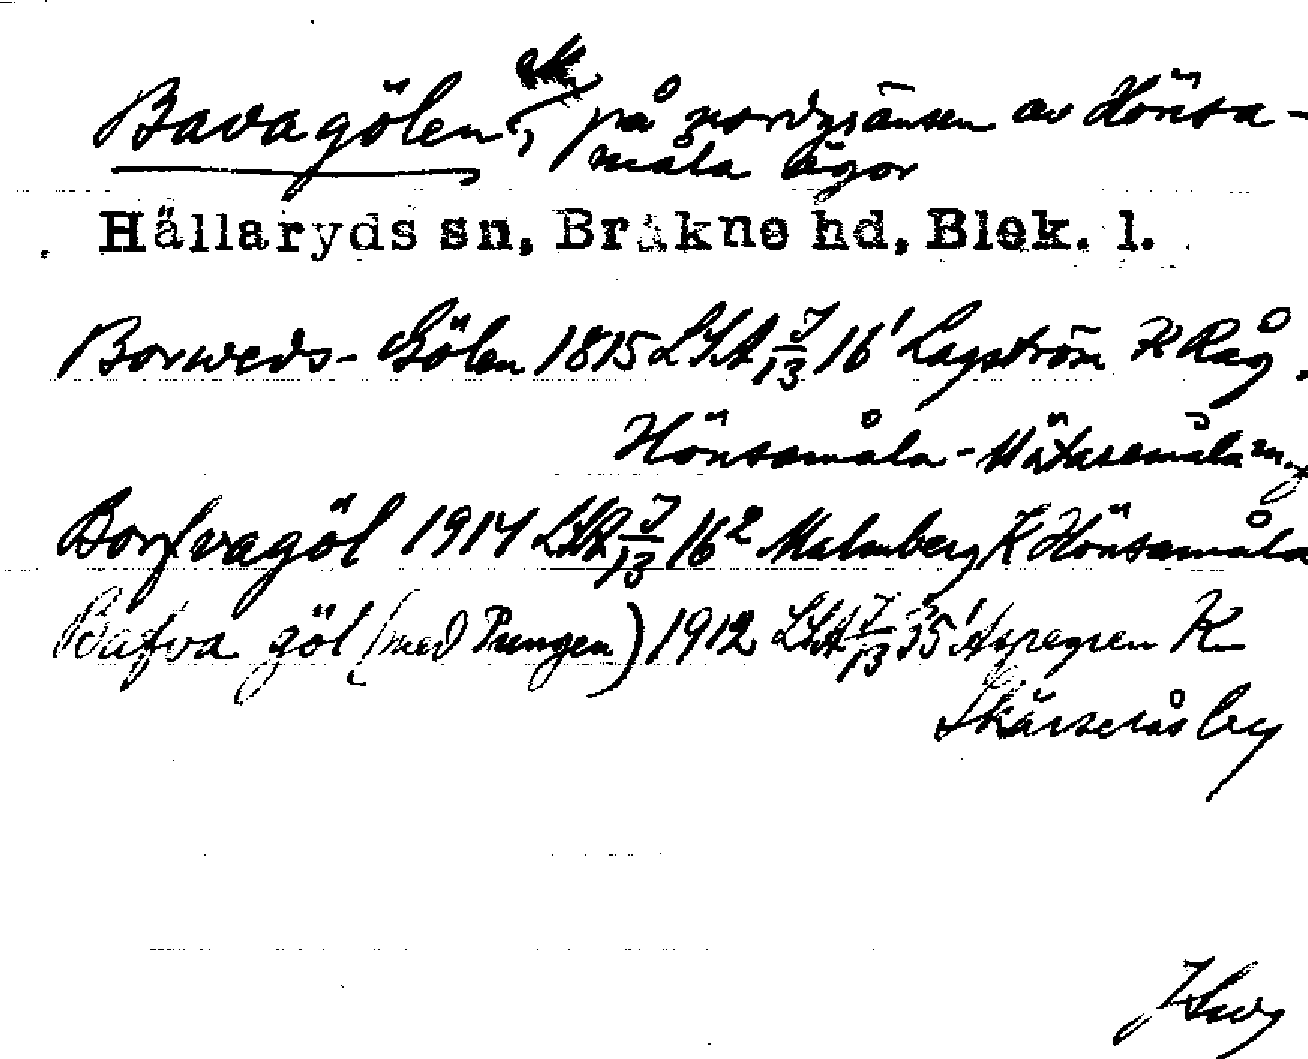 Bavagölen, på nordgränsen av Hönsa-
måla ägor
Hällaryds sn, Bräkne hd, Blek. l.
Borweds-Gölen 1815 LSA J/13 16¹ Lagström K Råg.
Hönsamåla - Mätaremåla
Borfvagöl 1914 LSA J/13 16² Malmberg K Hönsamåla
Bafva göl (med Pungen) 1912 LSA J/13 35¹ K
Skärseråsby